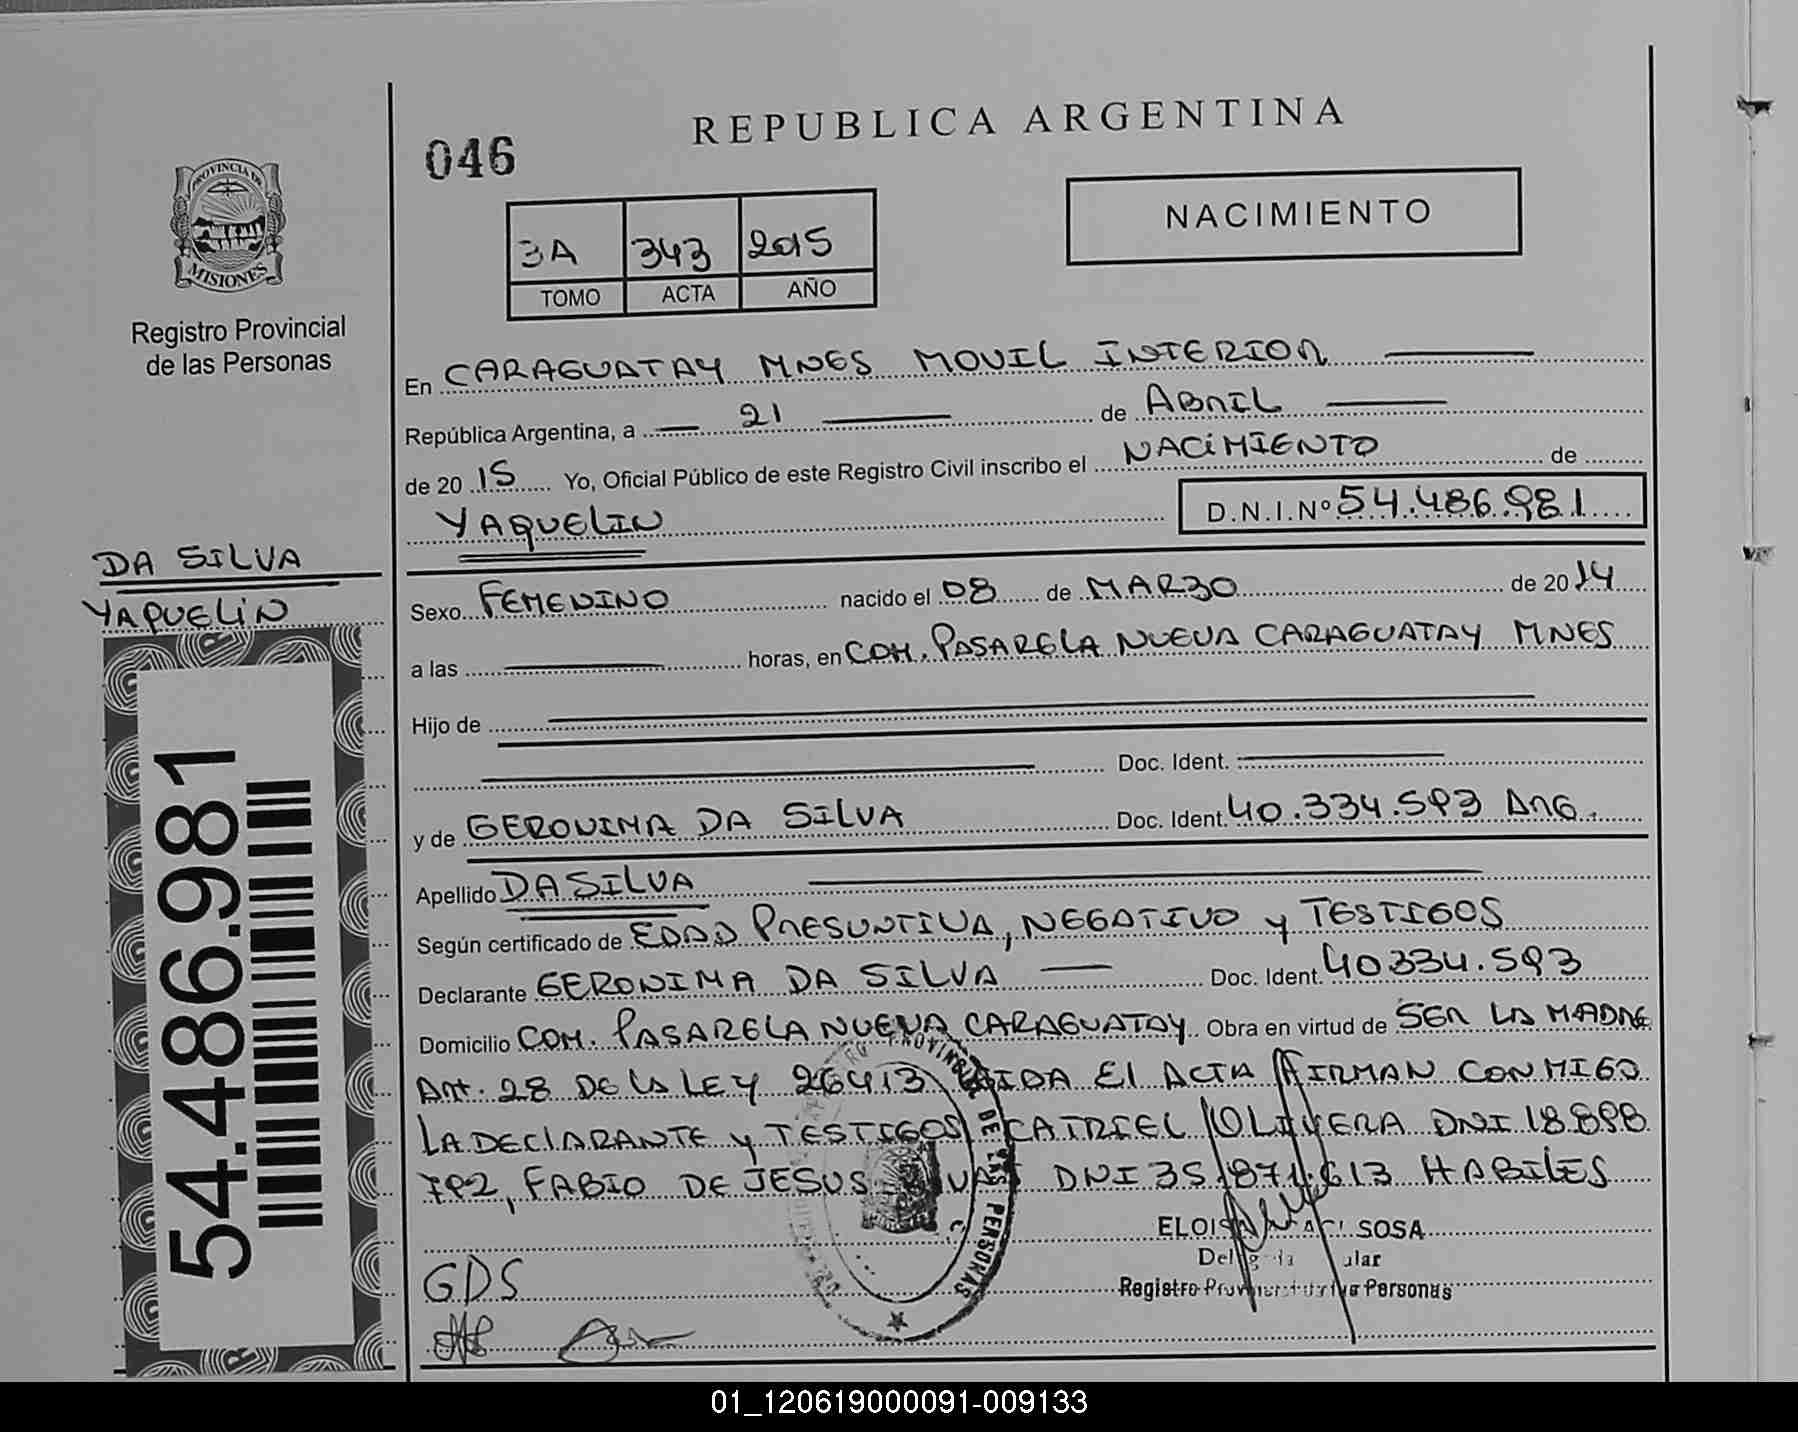 REPUBLICA ARGENTINA
046
NACIMIENTO
3A 343 2015
TOMO ACTA AÑO
PROVINCIA DE
MISIONES
Registro Provincial
de las Personas
En CARAGUATAY MNES MOVIL INTERIOR
República Argentina, a 21 de ABRIL
de 20 15 Yo, Oficial Público de este Registro Civil inscribo el NACIMIENTO de
YAQUELIN D.N.I.Nº 54.486.981
DA SILVA
YAQUELIN
Sexo FEMENINO nacido el 08 de MARZO de 20 14
a las horas, en COM. PASARELA NUEVA CARAGUATAY MNES
Hijo de
Doc. Ident.
y de GERONIMA DA SILVA Doc. Ident. 40.334.593 ARG.
Apellido DA SILVA
Según certificado de EDAD PRESUNTIVA, NEGATIVO y TESTIGOS
Declarante GERONIMA DA SILVA Doc. Ident. 40334.593
Domicilio COM. PASARELA NUEVA CARAGUATAY Obra en virtud de SER LA MADRE
ART. 28 DE LA LEY 26413 LEIDA El ACTA FIRMAN CONMIGO
LA DEClARANTE y TESTIGOS CATRIEL OLIVERA DNI 18.898
792, FABIO DE JESUS DNI 35.871.613 HABILES
54.486.981
DE LAS PERSONAS
ELOISA SOSA
Registro Personas
GDS
01_120619000091-009133